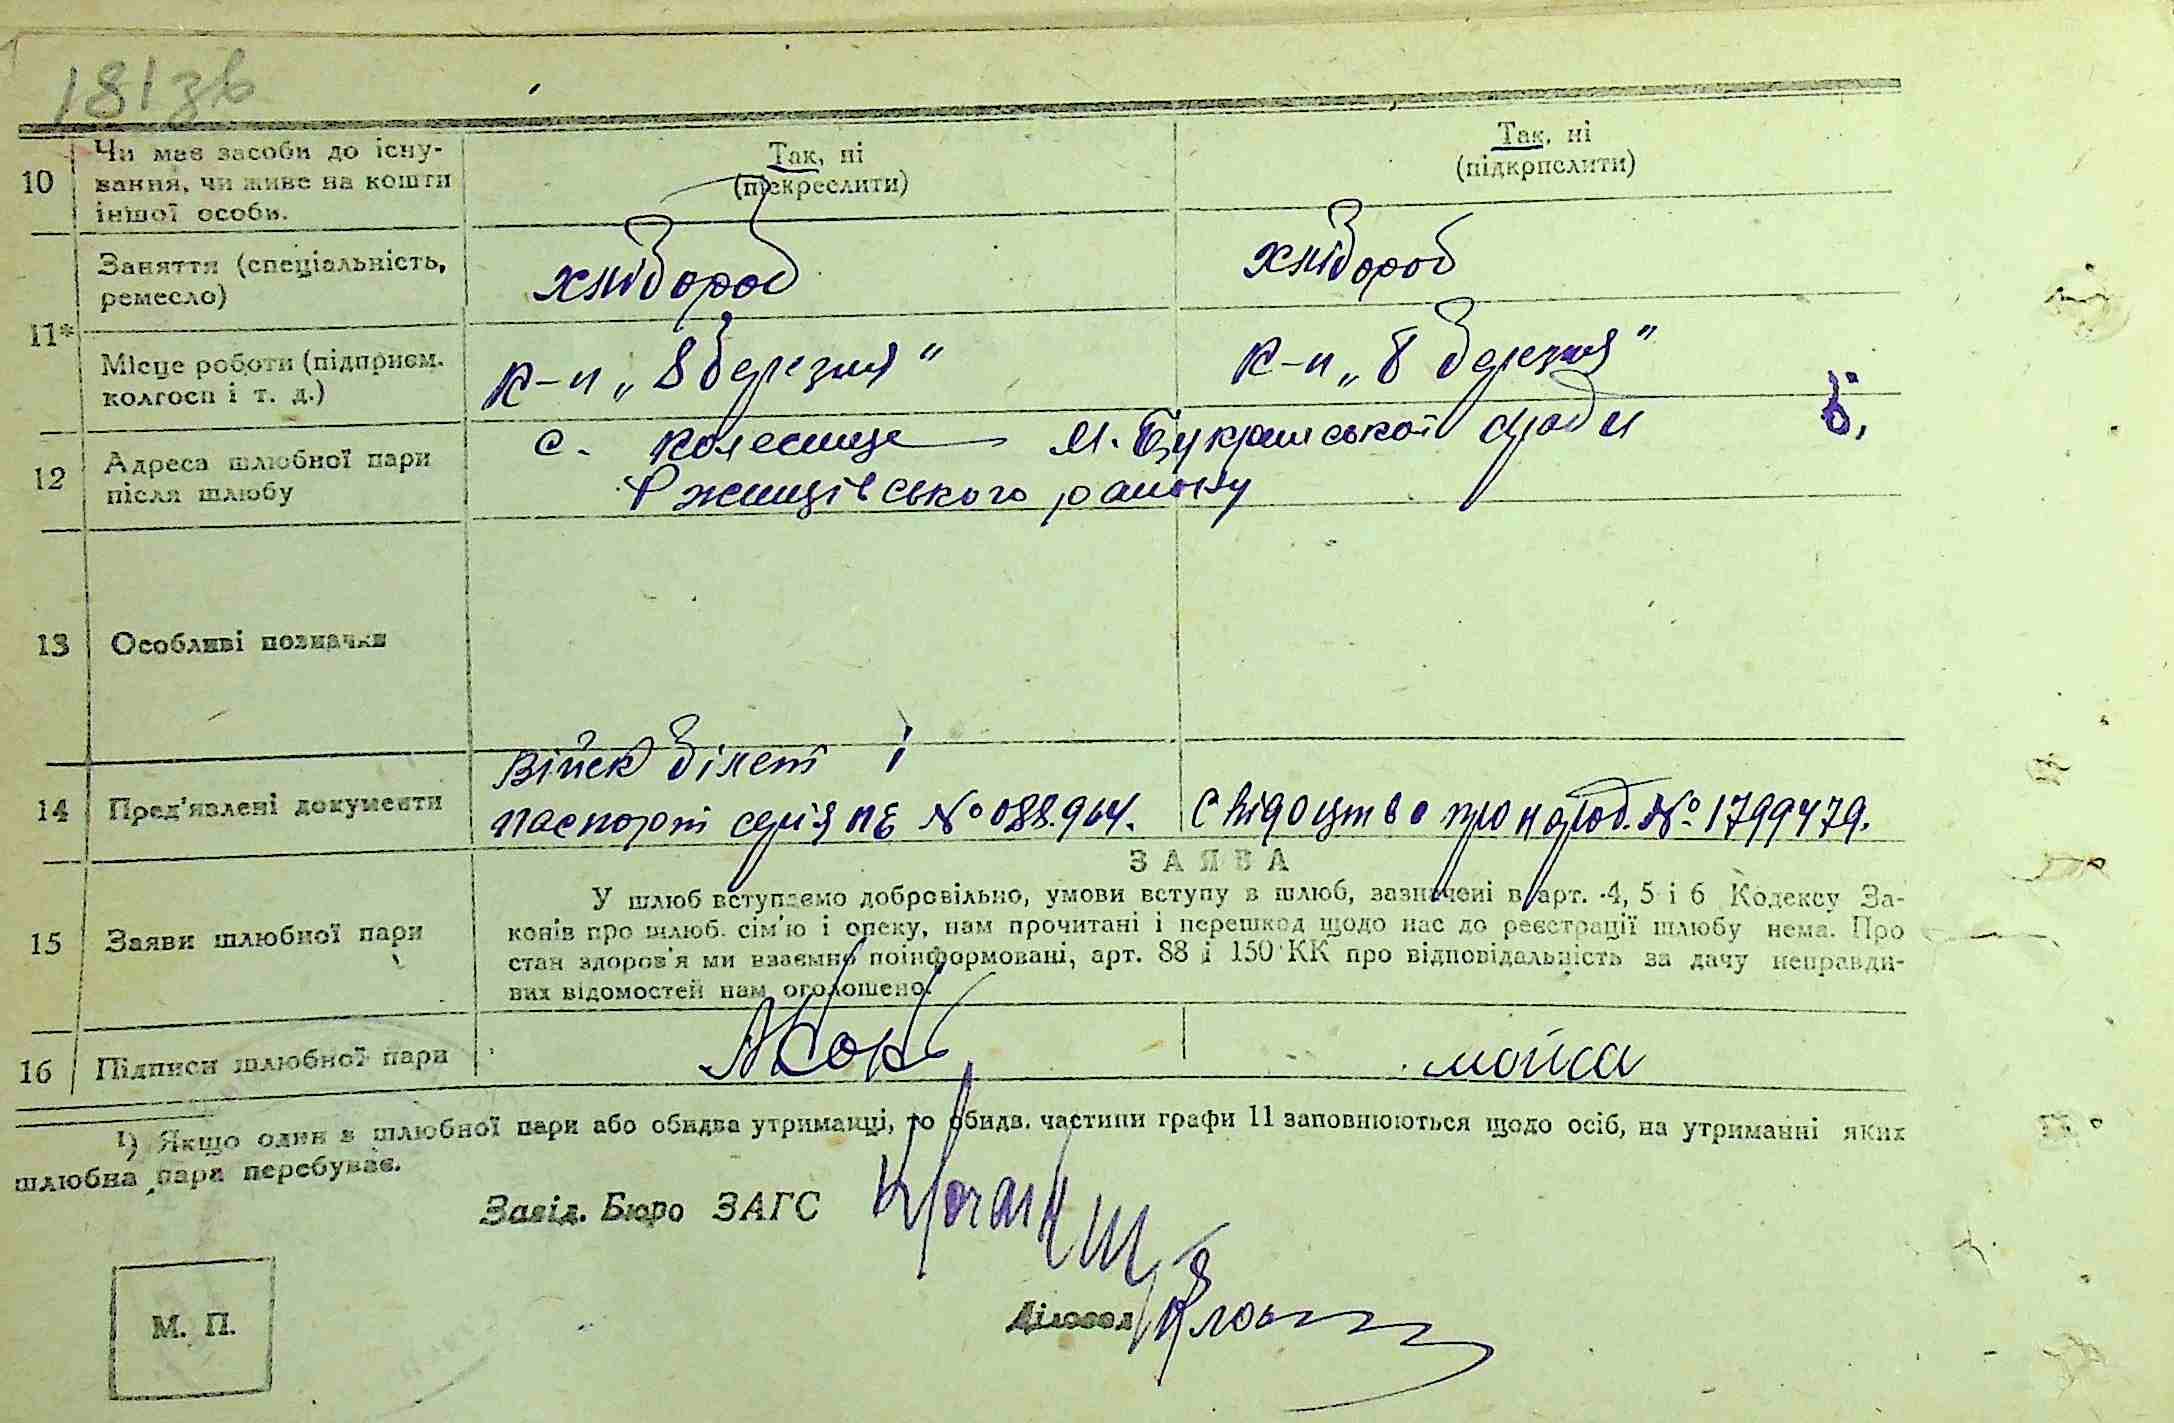 181зв
10
Чи має засоби до існу-
вання, чи живе на кошти
іншої особи.
Так, ні
(підкреслити)
Так, ні
(підкрпслити)
11*
Заняття (спеціальність,
ремесло)
хлібороб
хлібороб
Місце роботи (підприєм.
колгосп і т. д.)
к-п „8 березня"
к-п „8 березня"
12
Адреса шлюбної пари
після шлюбу
с. Колесище М. Букринської с/ради
Ржищівського району
13
Особливі позначки
14
Пред'явлені документи
Війск білет і
паспорт серія ПЕ № 088.964.
Свідоцтво про народ. № 1799479.
15
Заяви шлюбної пари
ЗАЯВА
У шлюб вступаємо добровільно, умови вступу в шлюб, зазначені в арт. 4, 5 і 6 Кодексу За-
конів про шлюб. сім'ю і опеку, нам прочитані і перешкод щодо нас до реєстрації шлюбу нема. Про
стан здоров'я ми взаємно поінформовані, арт. 88 і 150 КК про відповідальність за дачу неправди-
вих відомостей нам оголошено.
16
Підписи шлюбної пари
мойса
¹) Якщо один в шлюбної пари або обидва утриманці, то обидв. частини графи 11 заповнюються щодо осіб, на утриманні яких
шлюбна пара перебуває.
Завід. Бюро ЗАГС
Діловод
М. П.